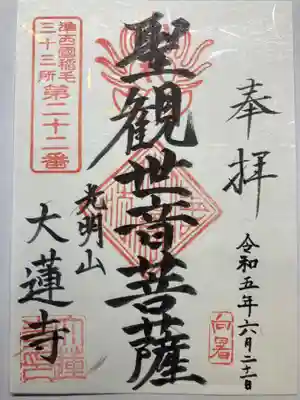 奉拝
令和五年六月二十一日
向暑
聖観世音菩薩
光明山
大蓮寺
準西國稲毛
三十三所
第二十二番